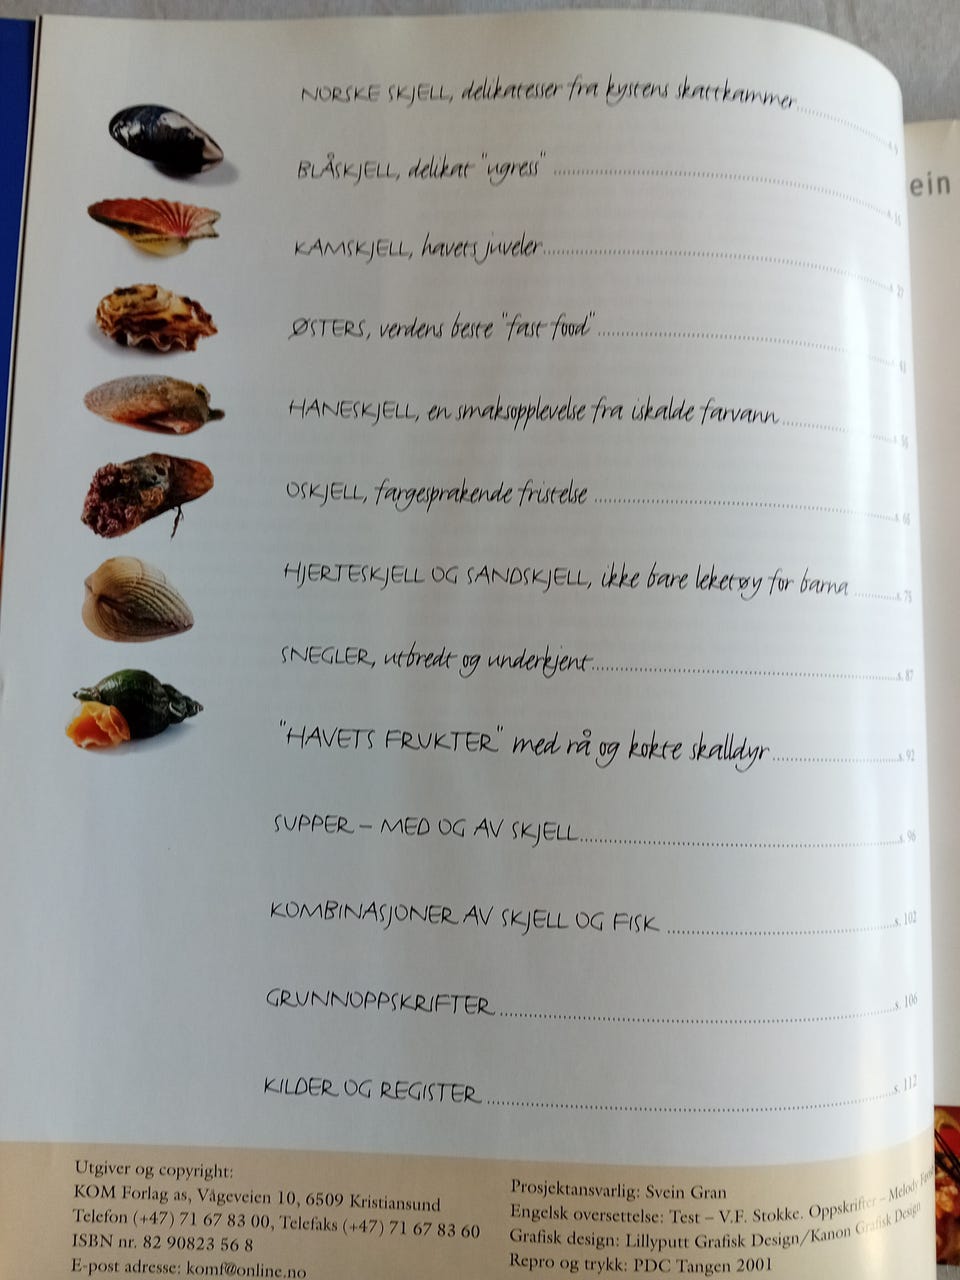 NORSKE SKJELL, delikatesser fra kystens skattkammer
BLÅSKJELL, delikat "ugress"
KAMSKJELL, havets juveler
ØSTERS, verdens beste "fast food"
HANESKJELL, en smaksopplevelse fra iskalde farvann
OSKJELL, fargesprakende fristelse
HJERTESKJELL OG SANDSKJELL, ikke bare leketøy for barna ..........s. 75
SNEGLER, utbredt og underkjent..........s. 87
"HAVETS FRUKTER" med rå og kokte skalldyr..........s. 92
SUPPER – MED OG AV SKJELL..........s. 96
KOMBINASJONER AV SKJELL OG FISK ..........s. 102
GRUNNOPPSKRIFTER..........s. 106
KILDER OG REGISTER..........s. 112
Utgiver og copyright:
KOM Forlag as, Vågeveien 10, 6509 Kristiansund
Telefon (+47) 71 67 83 00, Telefaks (+47) 71 67 83 60
ISBN nr. 82 90823 56 8
E-post adresse: komf@online.no
Prosjektansvarlig: Svein Gran
Engelsk oversettelse: Test – V.F. Stokke. Oppskrifter – Melody
Grafisk design: Lillyputt Grafisk Design/Kanon Grafisk Design
Repro og trykk: PDC Tangen 2001
ein